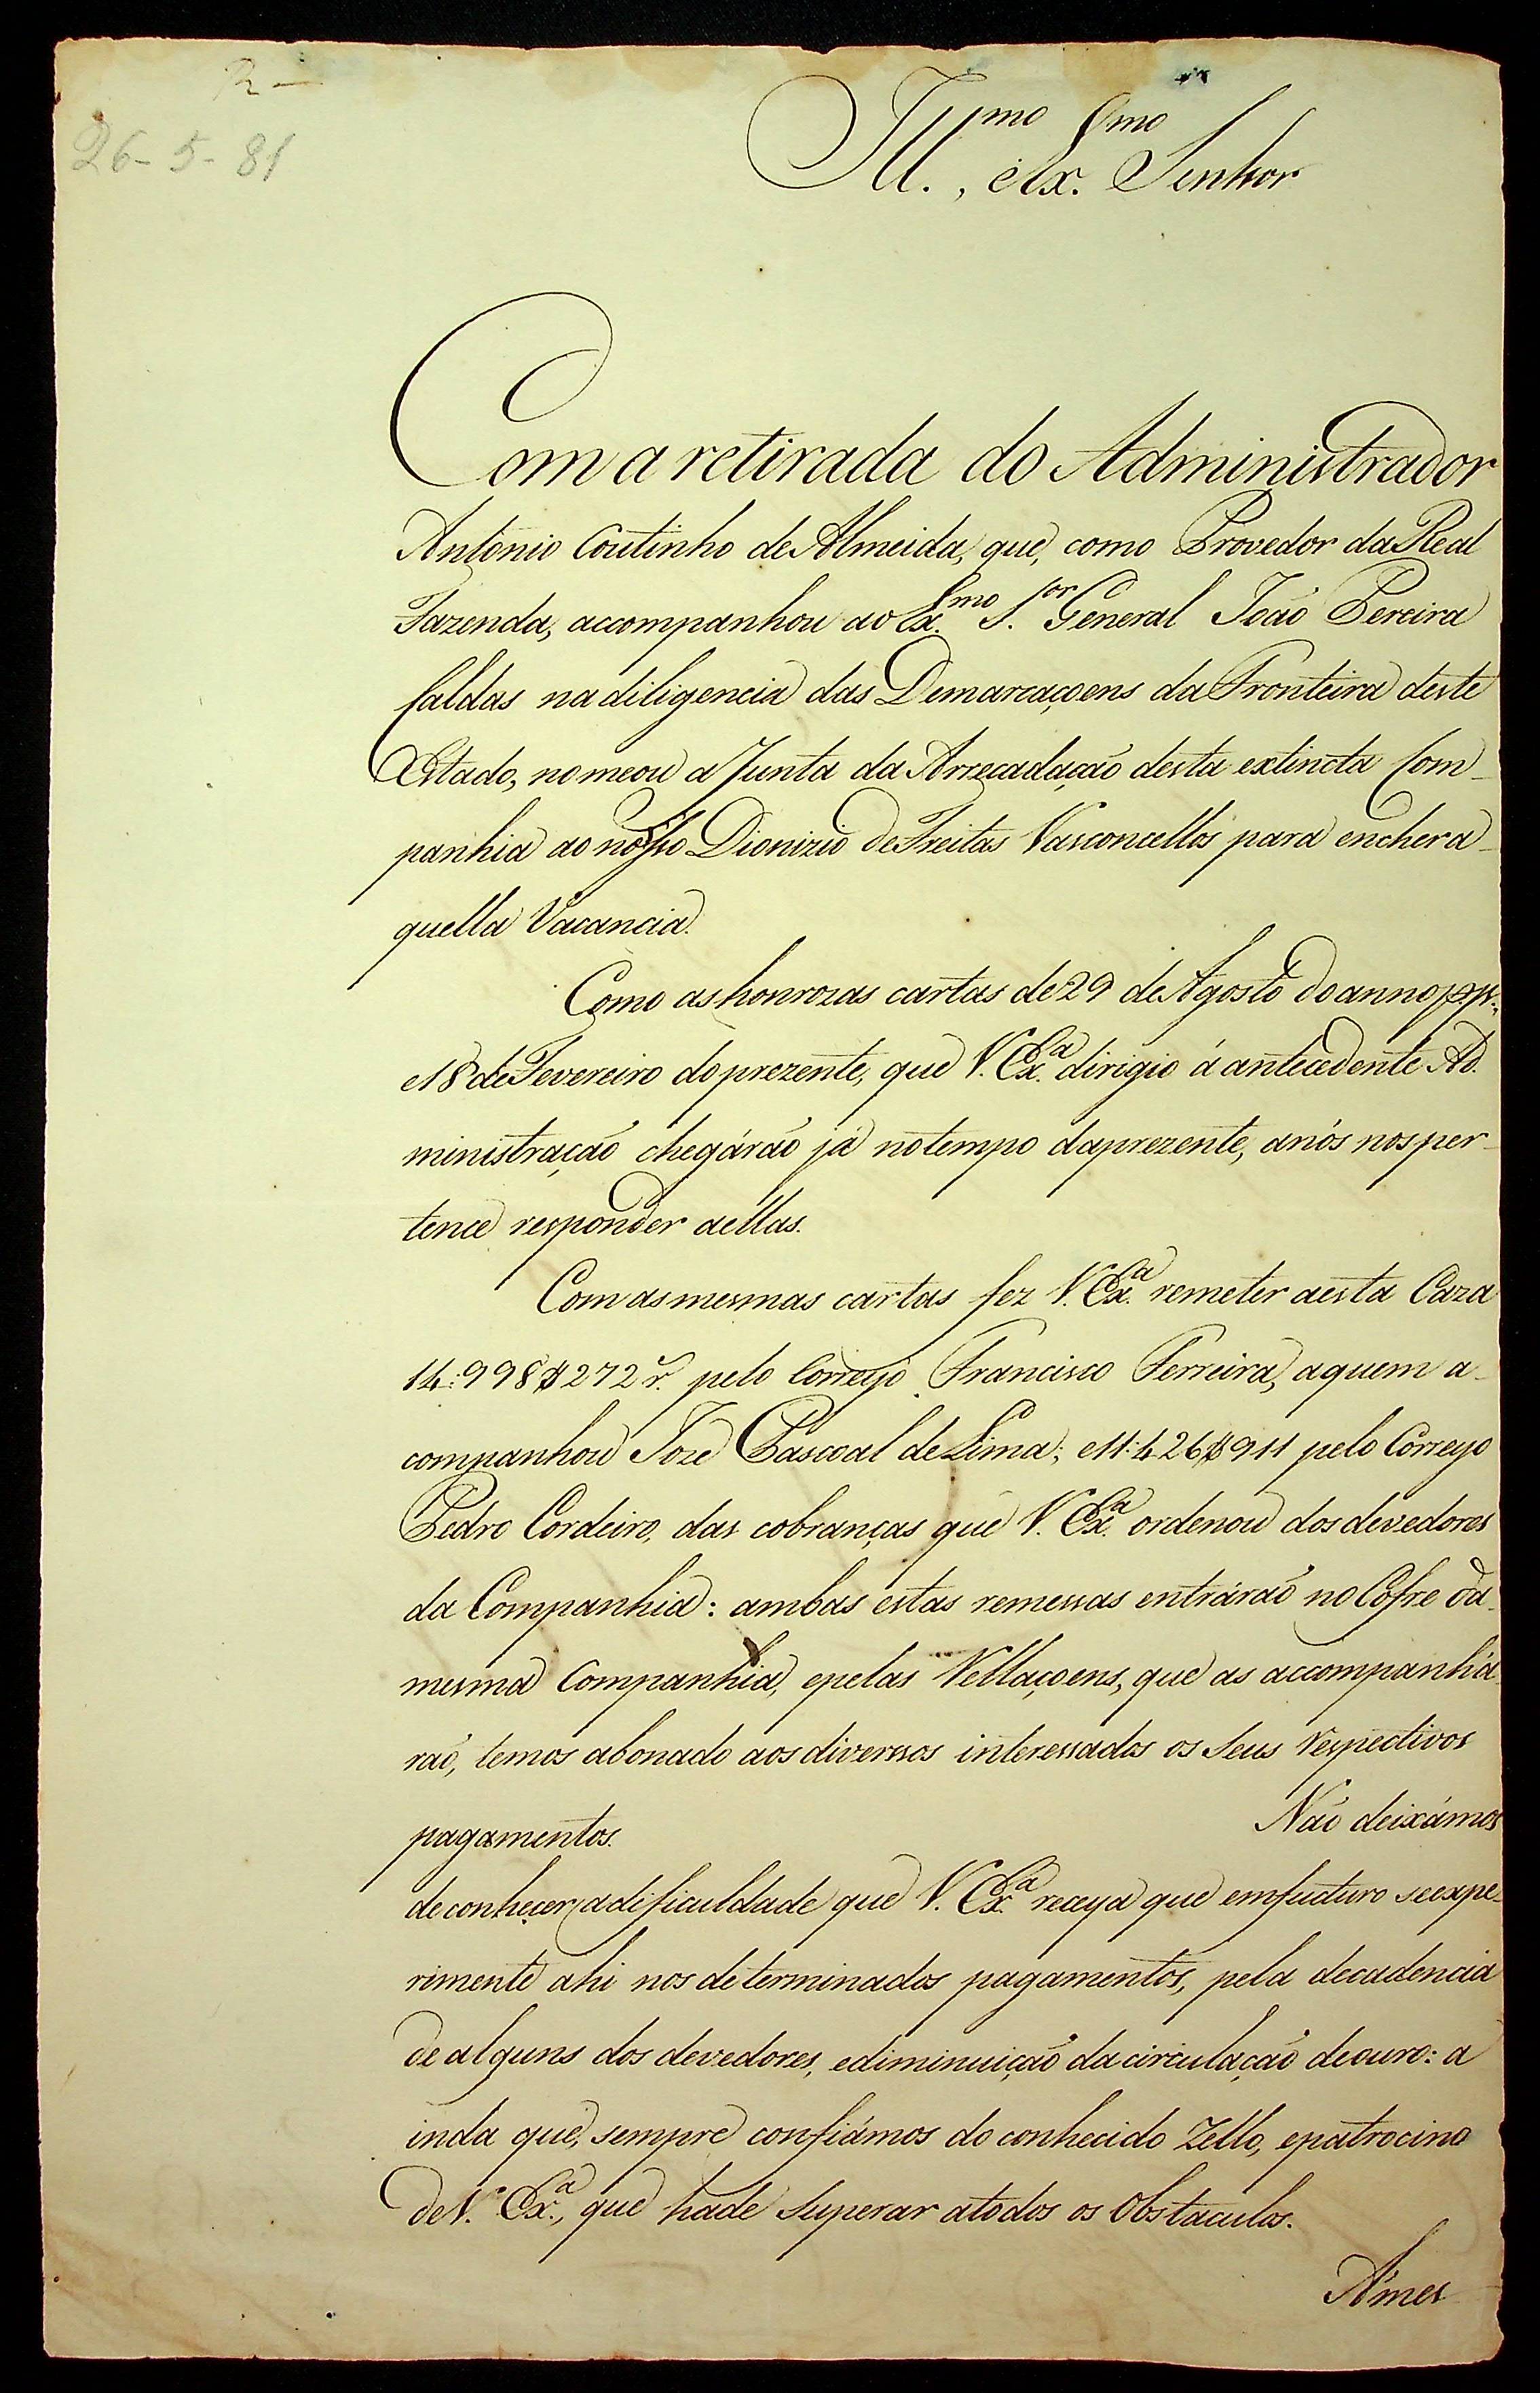 R—
26-5-81
Ill.mo, e Ex.mo Senhor
Com a retirada do Administrador
Antonio Coutinho de Almeida, que, como Provedor da Real
Fazenda, accompanhou ao Ex.mo S.or General João Pereira
Caldas na diligencia das Demarcaçoens da Fronteira deste
Estado, nomeou a Junta da Arrecadação desta extincta Com-
panhia ao nósso Dionizio de Freitas Vasconcellos para encher a-
quella Vacancia.
Como as honrozas cartas de 29 de Agosto do anno p.p.,
e 18 de Fevereiro do prezente, que V. Ex.a dirigio á antecedente Ad-
ministração chegárão já no tempo da prezente, a nós nos per-
tence responder a ellas.
Com as mesmas cartas fez V. Ex.a remeter a esta Caza
14:998$272 r. pelo Correyo Francisco Ferreira, a quem a-
companhou Joze Pascoal de Lima; e 11:426$911 pelo Correyo
Pedro Cordeiro, das cobranças que V. Ex.a ordenou dos devedores
da Companhia: ambas estas remessas entrárão no Cofre da
mesma Companhia, e pelas Rellaçoens, que as accompanhá-
rão, temos abonado aos diversos interessados os seus Respectivos
pagamentos. Não deixámos
de conheçer a dificuldade que V. Ex.a receya que em futuro se expe-
rimente ahi nos determinados pagamentos, pela decadencia
de alguns dos devedores, e diminuição da circulação de ouro: a
inda que, sempre confiámos do conhecido Zello, e patrocino
de V. Ex.a, que hade superar a todos os Obstaculos.
A mes